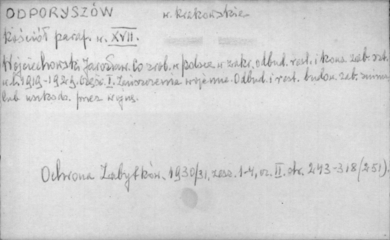 ODPORYSZÓW w. krakowskie
Kościół paraf. w. XVII.
Wojciechowski Jarosław. Co zrob. w Polsce w zakr. odbud. rest. i kons. zab. szt.
w l. 1919-1929. Część I. Zniszczenia wojenne. Odbud. i rest. budow. zab. zniszcz.
lub uszkodz. przez wojnę.
Ochrona Zabytków. 1930/31, zesz. 1-4, cz. II. str. 243-318/251).